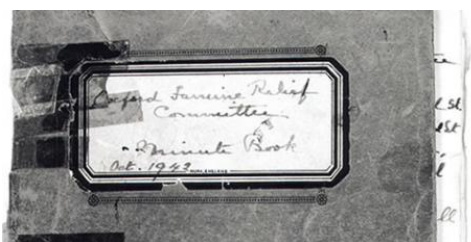 Oxford Famine Relief
Committee.
- Minute Book
Oct. 1942
St
St
ll